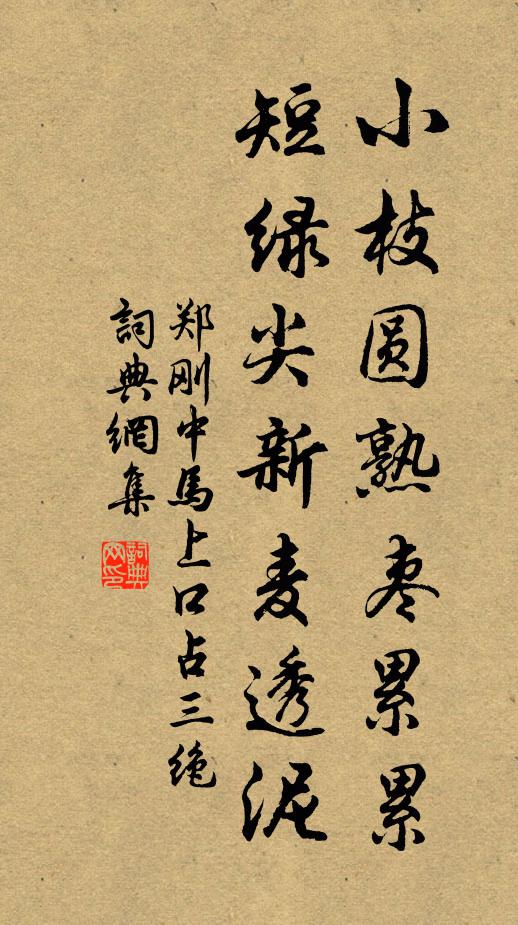 小枝圆熟枣累累
短绿尖新麦透泥
郑刚中马上口占三绝
詞典網集
詞典网印